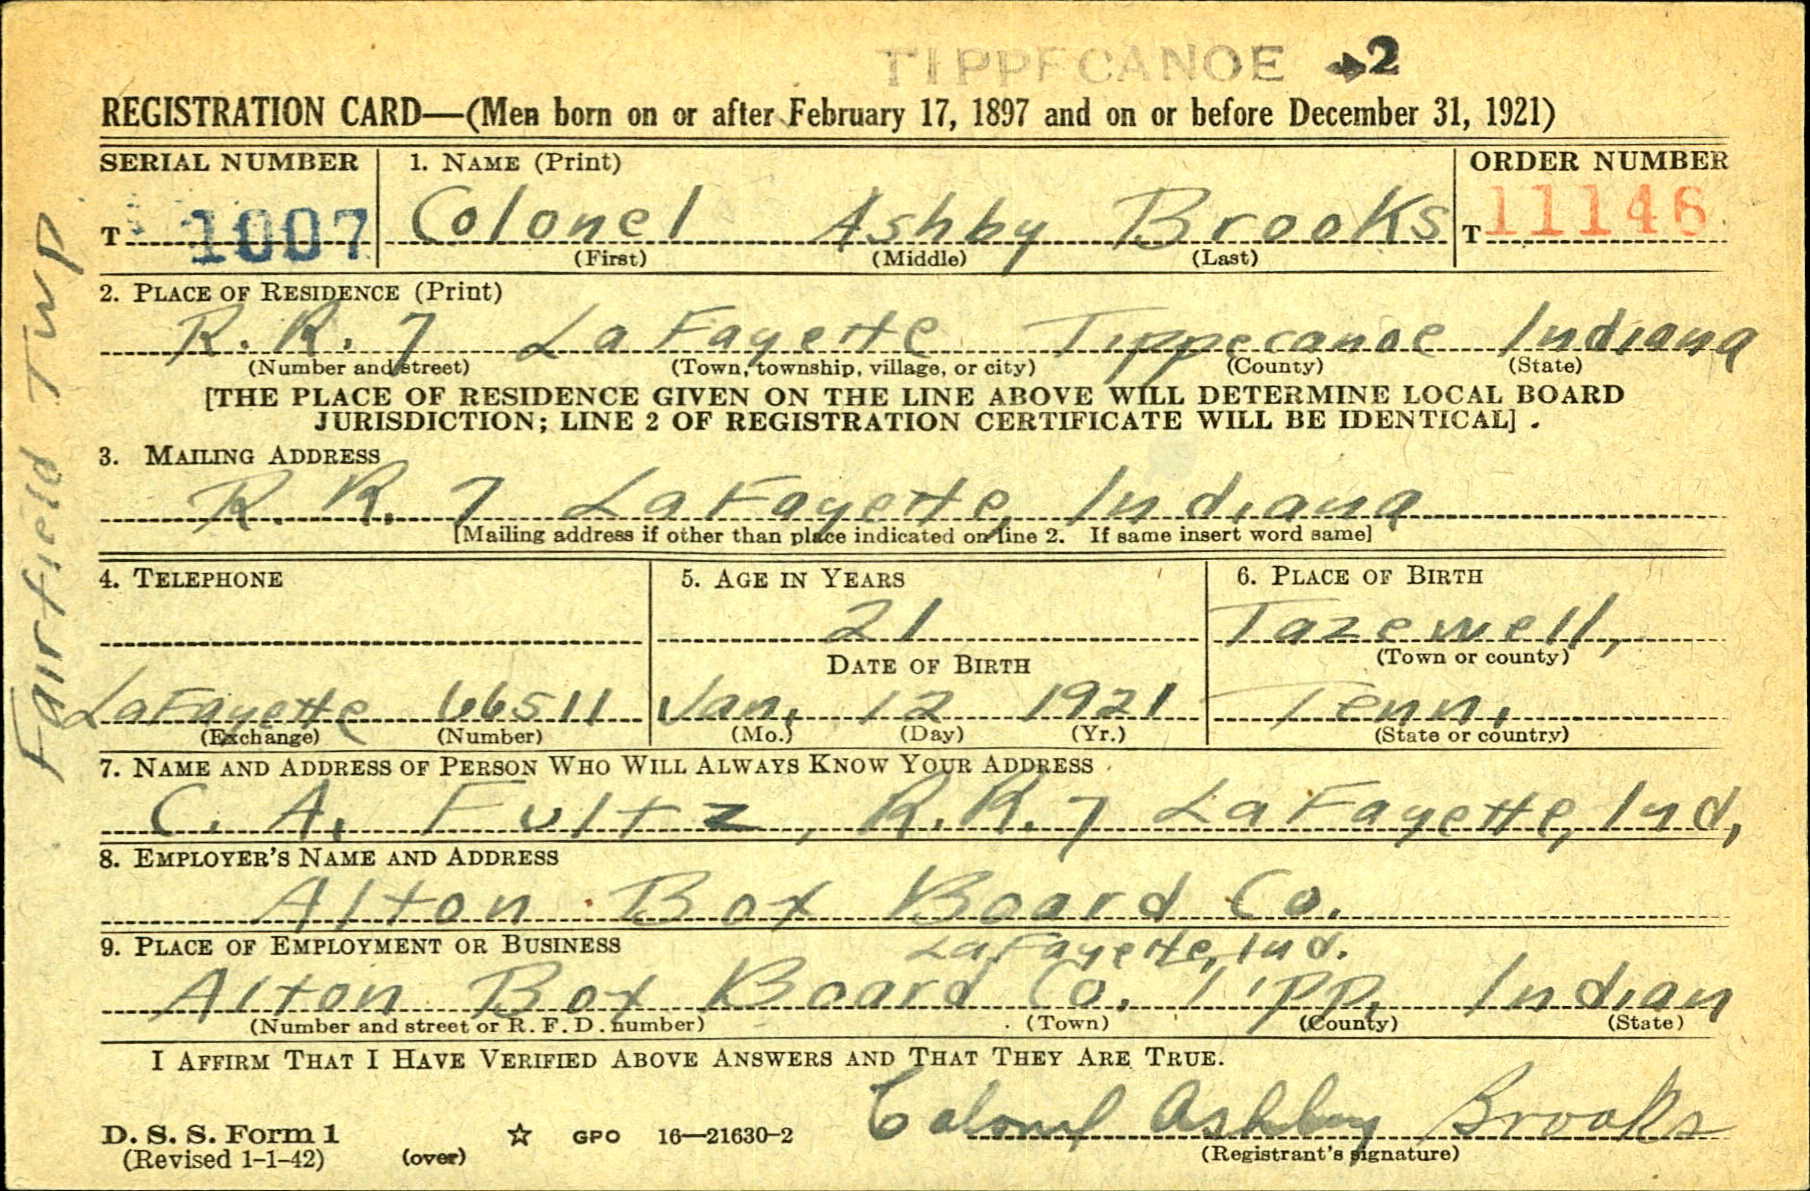 TIPPECANOE →2
REGISTRATION CARD—(Men born on or after February 17, 1897 and on or before December 31, 1921)
SERIAL NUMBER 1. NAME (Print) ORDER NUMBER
T 1007 Colonel Ashby Brooks T 11146
(First) (Middle) (Last)
2. PLACE OF RESIDENCE (Print)
R. R. 7 LaFayette Tippecanoe Indiana
(Number and street) (Town, township, village, or city) (County) (State)
[THE PLACE OF RESIDENCE GIVEN ON THE LINE ABOVE WILL DETERMINE LOCAL BOARD
JURISDICTION; LINE 2 OF REGISTRATION CERTIFICATE WILL BE IDENTICAL] .
3. MAILING ADDRESS
R. R. 7 LaFayette, Indiana
[Mailing address if other than place indicated on line 2. If same insert word same]
4. TELEPHONE 5. AGE IN YEARS 6. PLACE OF BIRTH
21 Tazewell,
DATE OF BIRTH (Town or county)
LaFayette 66511 Jan. 12 1921 Tenn.
(Exchange) (Number) (Mo.) (Day) (Yr.) (State or country)
7. NAME AND ADDRESS OF PERSON WHO WILL ALWAYS KNOW YOUR ADDRESS
C. A. Fultz, R.R. 7 LaFayette, Ind,
8. EMPLOYER'S NAME AND ADDRESS
Alton Box Board Co.
9. PLACE OF EMPLOYMENT OR BUSINESS LaFayette, Ind.
Alton Box Board Co. Tipp. Indian
(Number and street or R. F. D. number) (Town) (County) (State)
I AFFIRM THAT I HAVE VERIFIED ABOVE ANSWERS AND THAT THEY ARE TRUE.
Colonel Ashby Brooks
D. S. S. Form 1 ☆ GPO 16—21630-2
(Revised 1-1-42) (over) (Registrant's signature)
Fairfield Twp